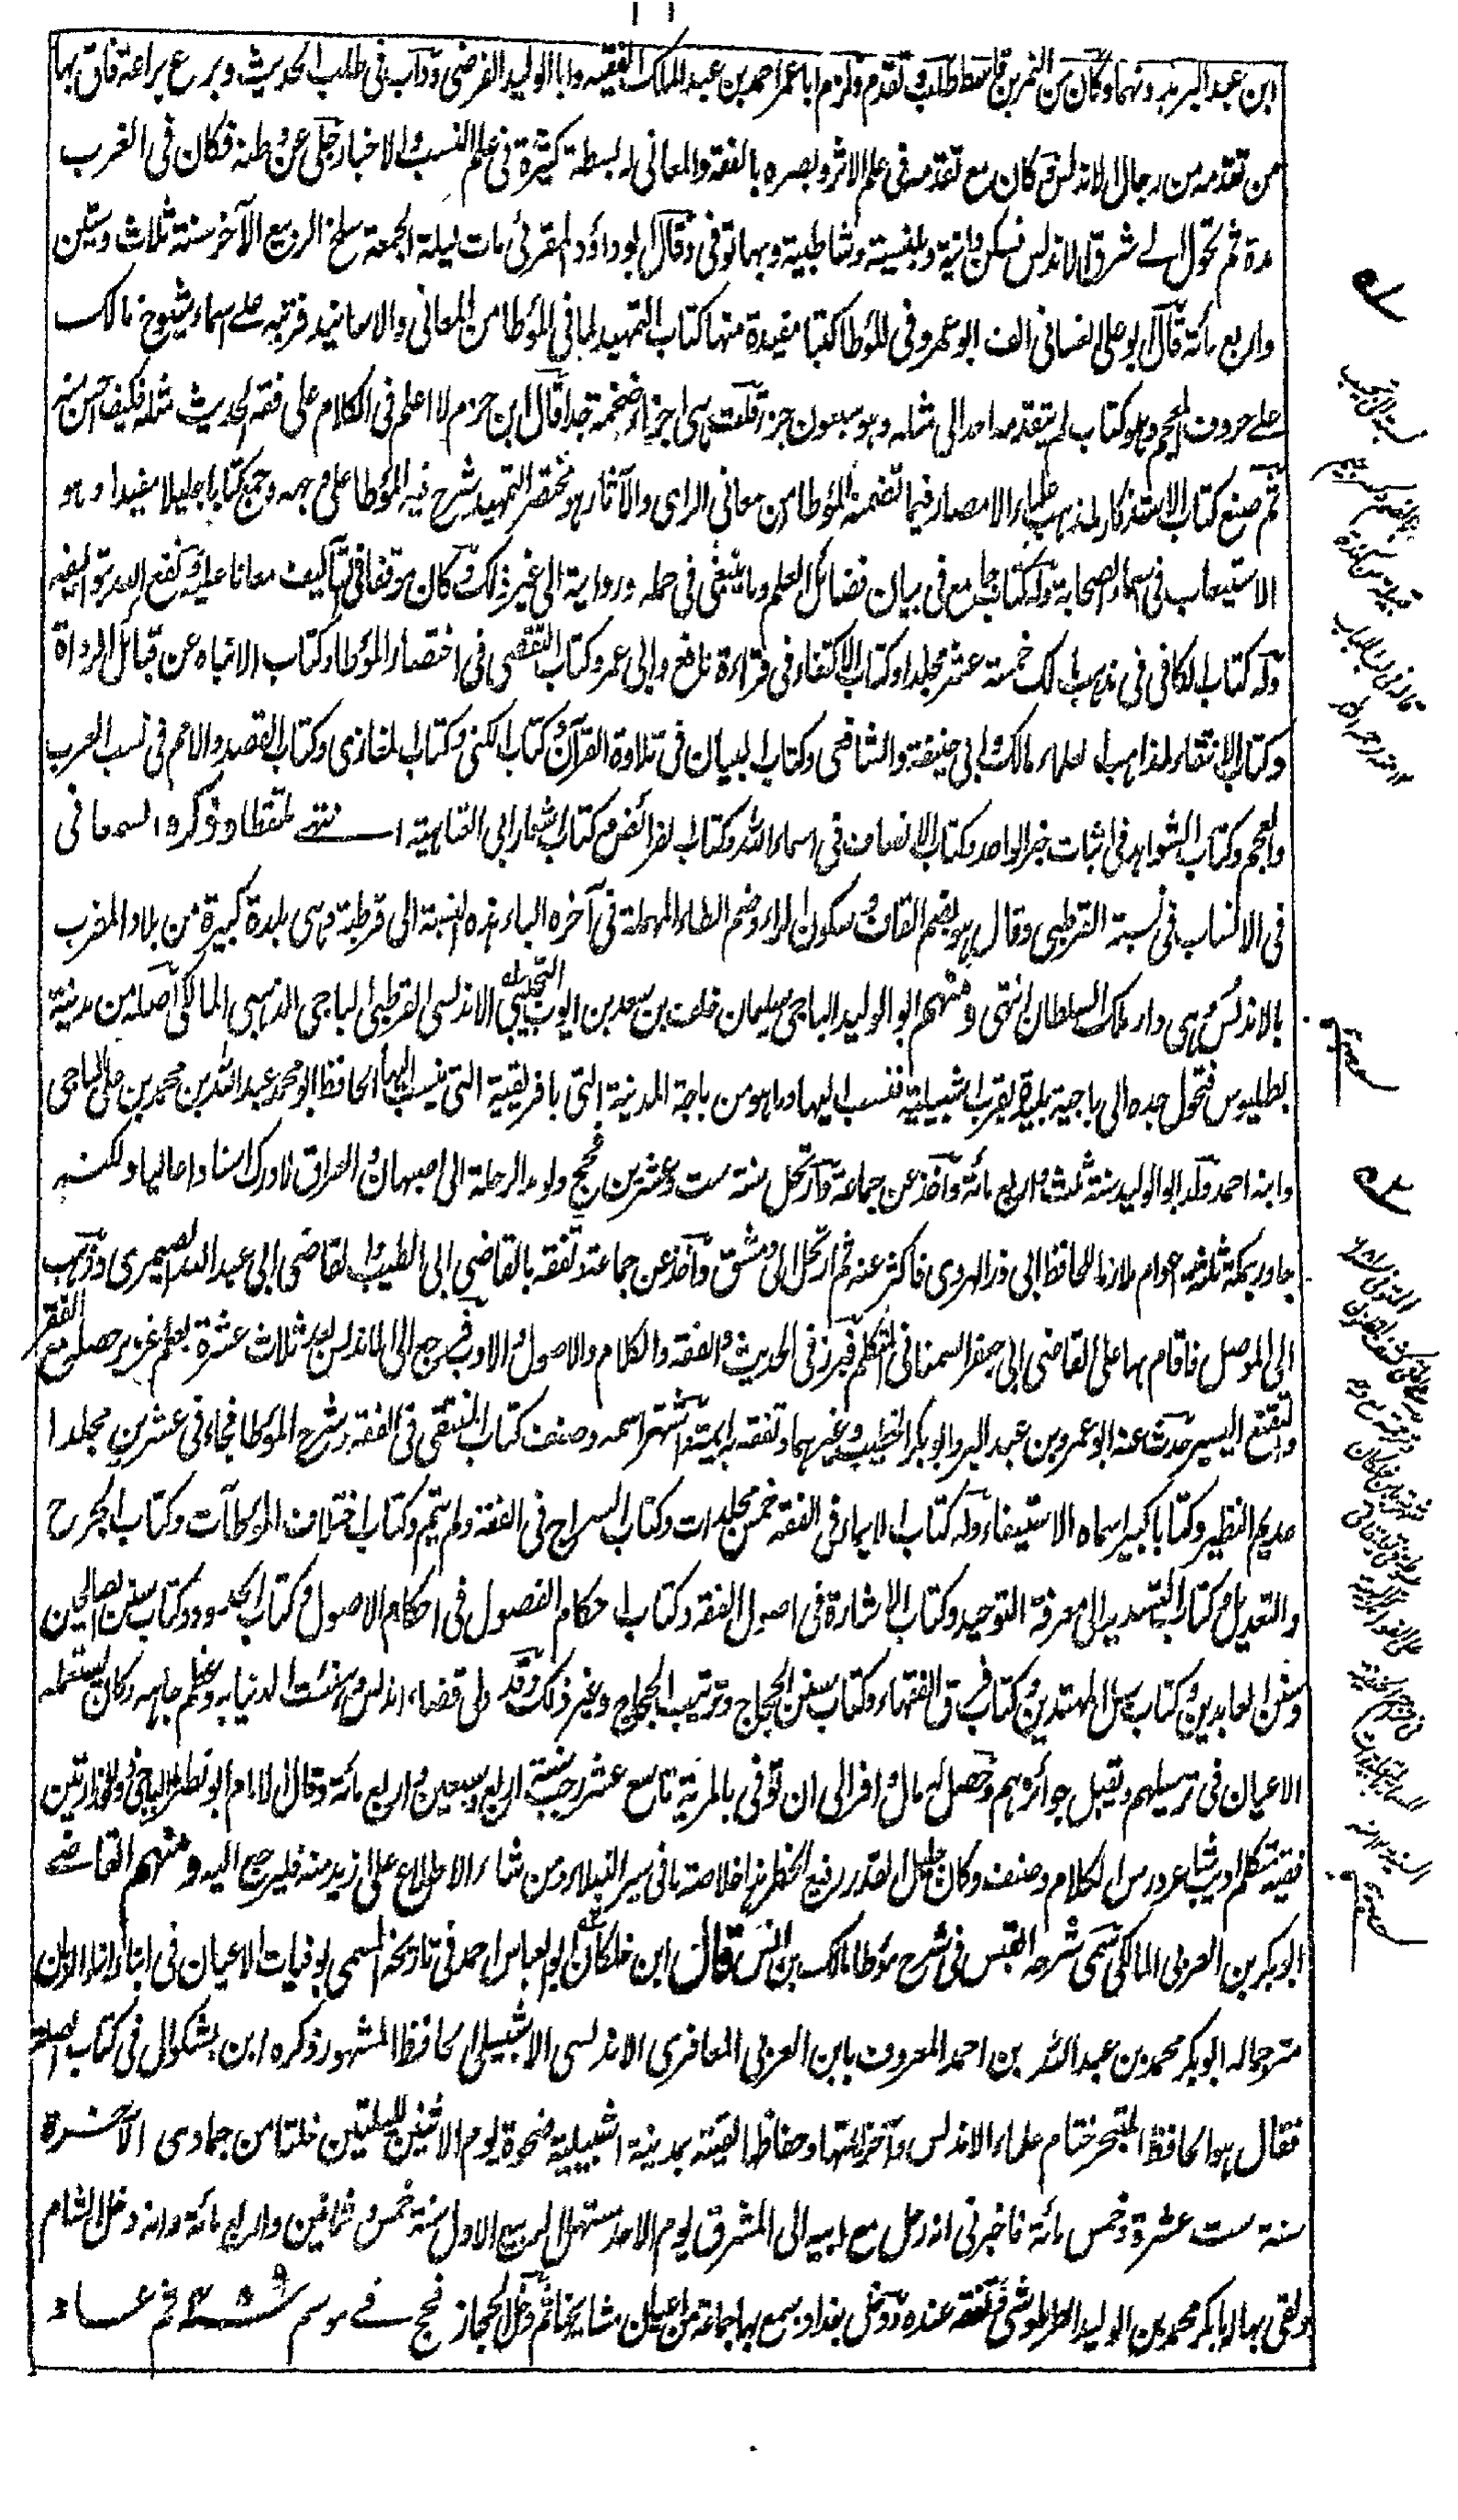 ابن عبد البر بهم ومنهما وكان من النمر بن قاسط طلب وتقدم ولزم ابا عمر احمد بن عبد الملك الفقيه وابا الوليد الفرضى ودأب فى طلب الحديث وبرع براعة فاق بها
من تقدمه من رجال الاندلس وكان مع تقدمه فى علم الاثر وبصره بالفقه والمعانى له بسطة كثيرة فى علم النسب والاخبار جلى عن وطنه فكان فى الغرب
مدة ثم تحول الى شرق الاندلس فسكن دانية وبلنسية وشاطبية وبها توفى وقال ابو داؤد المقرئ مات ليلة الجمعة سلخ الربيع الآخر سنة ثلاث وستين
واربع مائة قال ابو على الغسانى الف ابو عمرو فى المؤطا كتبا مفيدة منها كتاب التمهيد لما فى المؤطا من المعانى والاسانيد فرتبه على اسماء شيوخ مالك
على حروف المعجم وهو كتاب لم يتقدمه احد الى مثله وهو سبعون جزء قلت هى اجزاء ضخمة جدا قال ابن حزم لا اعلم فى الكلام على فقه الحديث مثله فكيف احسن منه
ثم صنع كتاب الاستذكار لمذهب علماء الامصار فيما تضمنه المؤطا من معانى الراى والآثار وهو مختصر التمهيد شرح فيه المؤطا على وجهه وجمع كتابا جليلا مفيدا وهو
الاستيعاب فى اسماء الصحابة وله كتاب جامع فى بيان فضائل العلم وما ينبغى فى حمله وروايته الى غير ذلك وكان موفقا فى التآليف معانا عليه ونفع الله بتواليفه
وله كتاب الكافى فى مذهب مالك خمسة عشر مجلدا وكتاب الاكتفاء فى قراءة نافع وابى عمر وكتاب التقصى فى اختصار المؤطا وكتاب الانباه عن قبائل الرواة
وكتاب الانتقاء لمذاهب العلماء مالك وابى حنيفة والشافعى وكتاب البيان فى تلاوة القرآن وكتاب الكنى وكتاب المغازى وكتاب القصد والامم فى نسب العرب
والعجم وكتاب الشواهد فى اثبات خبر الواحد وكتاب الانصاف فى اسماء الله وكتاب الفرائض وكتاب اشعار ابى العتاهية انتهى ملتقطا وذكره السمعانى
فى الانساب فى نسبة القرطبى وقال هو بضم القاف وسكون الراء وضم الطاء المهملة فى آخره الباء هذه النسبة الى قرطبة وهى بلدة كبيرة من بلاد المغرب
بالاندلس وهى دار ملك السلطان انتهى ومنهم ابو الوليد الباجى سليمان خلف بن سعد بن ايوب التجيبى الاندلسى القرطبى الباجى الذهبى المالكى اصله من مدينة
بطليوس فتحول جده الى باجة بليدة بقرب اشبيلية فنسب اليها وما هو من باجة المدينة التى بافريقية التى ينسب اليها الحافظ ابو محمد عبد الله بن محمد بن على الباجى
وابنه احمد ولد ابو الوليد سنة ثلث واربع مائة واخذ عن جماعة وارتحل سنة ست وعشرين فحج ولو مد الرحلة الى اصبهان والعراق لادرك اسنادا عاليا ولكنه
جاور بمكة ثلثة اعوام ملازما للحافظ ابى ذر الهروى فاكثر عنه ثم ارتحل الى دمشق واخذ عن جماعة وتفقه بالقاضى ابى الطيب والقاضى ابى عبد الله الصيمرى وذهب
الى الموصل فاقام بها على القاضى ابى جعفر السمنانى المتكلم فبرز فى الحديث والفقه والكلام والاصول والادب فرجع الى الاندلس بعد ثلاث عشرة بعلم غزير حصله مع الفقر
والتقنع اليسير حدث عنه ابو عمرو بن عبد البر وابو بكر الخطيب وغيرهما وتفقه به ائمة اشتهر اسمه وصنف كتاب المنتقى فى الفقه وشرح المؤطا فجاء فى عشرين مجلدا
عديم النظير وكتابا كبيرا سماه الاستيفاء وله كتاب الايماء فى الفقه خمس مجلدات وكتاب السراج فى الفقه ولم يتم وكتاب اختلاف المؤطآت وكتاب الجرح
والتعديل وكتاب التسديد الى معرفة التوحيد وكتاب الاشارة فى اصول الفقه وكتاب احكام الفصول فى احكام الاصول وكتاب الحدود وكتاب سنن الصالحين
وسنن العابدين وكتاب سبل المهتدين وكتاب فرق الفقهاء وكتاب سنن الحجاج وترتيب الحجاج وغير ذلك وقد ولى قضاء اندلس وهنئت الدنيا به وعظم جاهه وكان يستعمله
الاعيان فى ترسيلهم ويقبل جوائزهم وحصل له مال وافر الى ان توفى بالمرية تاسع عشر رجب سنة اربع وسبعين واربع مائة وقال الامام ابو نصر الباجى ذو الوزارتين
فقيه متكلم اديب شاعر درس الكلام وصنف وكان جليل القدر رفيع الخطر هذا خلاصة ما فى سير النبلاء ومن شاء الاطلاع على ازيد منه فليرجع اليه ومنهم القاضى
ابو بكر بن العربى المالكى سمى شرحه القبس فى شرح مؤطا مالك بن انس قال ابن خلكان ابو العباس احمد فى تاريخه المسمى بوفيات الاعيان فى انباء ابناء الزمان
مترجما له ابو بكر محمد بن عبد الله بن احمد المعروف بابن العربى المعافرى الاندلسى الاشبيلى الحافظ المشهور ذكره ابن بشكوال فى كتاب الصلة
فقال هو الحافظ المتبحر ختام علماء الاندلس وآخر ائمتها وحفاظها لقيته بمدينة اشبيلية ضحوة يوم الاثنين لليلتين خلتا من جمادى الآخرة
سنة ست عشرة وخمس مائة فاخبرنى انه رحل مع ابيه الى المشرق يوم الاحد مستهل ربيع الاول سنة خمس وثمانين واربع مائة وانه دخل الشام
ولقى بها ابا بكر محمد بن الوليد الطرطوشى وتفقه عنده ودخل بغداد وسمع بها جماعة من اعيان مشايخها ثم دخل الحجاز فحج فى موسم ثم عاد